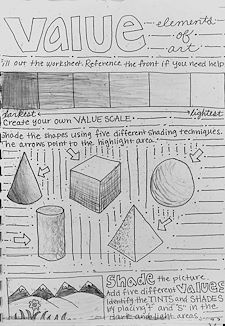 value
elements
of
art
Fill out the worksheet. Reference the front if you need help
darkest lightest
Create your own VALUE SCALE.
Shade the shapes using five different shading techniques.
The arrows point to the highlight area.
Shade the picture.
Add five different values
Identify the TINTS and SHADES
by placing t and "s" in the
dark and light areas.